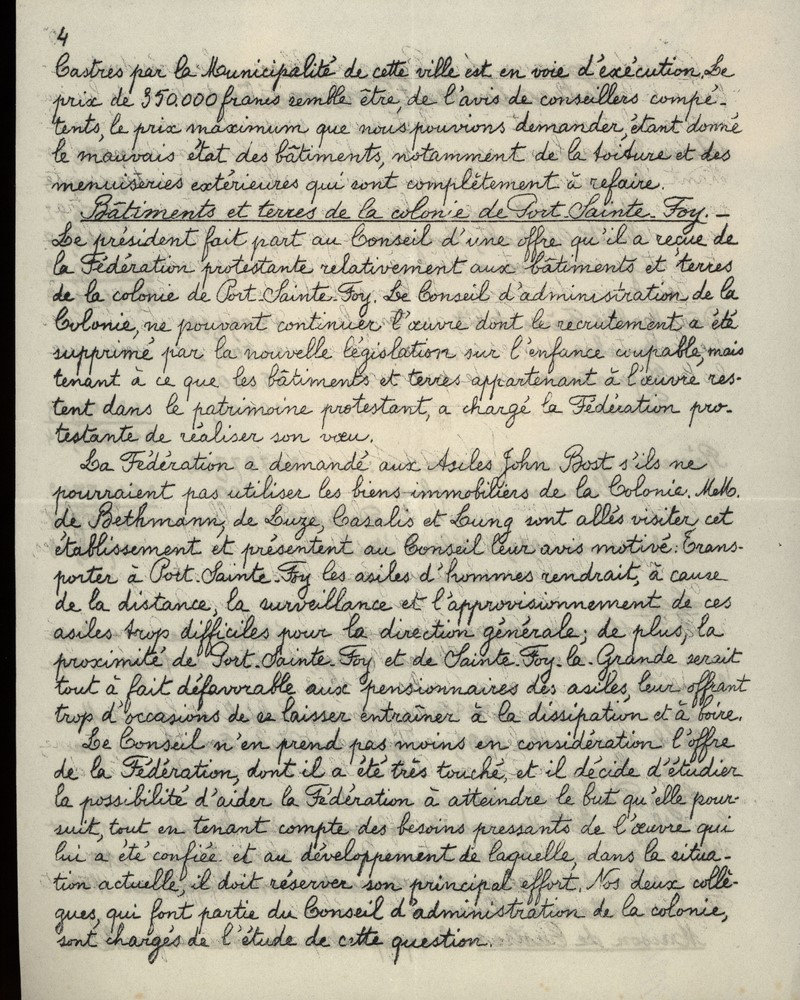 4
Castres par la Municipalité de cette ville est en voie d'exécution. Le
prix de 350.000 francs semble être, de l'avis de conseillers compé-
tents, le prix maximum que nous pouvions demander, étant donné
le mauvais état des bâtiments, notamment de la toiture et des
menuiseries extérieures qui sont complètement à refaire.
Bâtiments et terres de la colonie de Port-Sainte-Foy. —
Le président fait part au Conseil d'une offre qu'il a reçue de
la Fédération protestante relativement aux bâtiments et terres
de la colonie de Port-Sainte-Foy. Le Conseil d'administration de la
Colonie, ne pouvant continuer l'œuvre dont le recrutement a été
supprimé par la nouvelle législation sur l'enfance coupable, mais
tenant à ce que les bâtiments et terres appartenant à l'œuvre res-
tent dans le patrimoine protestant, a chargé la Fédération pro-
testante de réaliser son vœu.
La Fédération a demandé aux Asiles John Bost s'ils ne
pourraient pas utiliser les biens immobiliers de la Colonie. M.M.
de Bethmann, de Luze, Casalis et Lung sont allés visiter cet
établissement et présentent au Conseil leur avis motivé: Trans-
porter à Port-Sainte-Foy les asiles d'hommes rendrait, à cause
de la distance, la surveillance et l'approvisionnement de ces
asiles trop difficiles pour la direction générale; de plus, la
proximité de Port-Sainte-Foy et de Sainte-Foy-la-Grande serait
tout à fait défavorable aux pensionnaires des asiles, leur offrant
trop d'occasions de se laisser entraîner à la dissipation et à boire.
Le Conseil n'en prend pas moins en considération l'offre
de la Fédération, dont il a été très touché, et il décide d'étudier
la possibilité d'aider la Fédération à atteindre le but qu'elle pour-
suit, tout en tenant compte des besoins pressants de l'œuvre qui
lui a été confiée et au développement de laquelle, dans la situa-
tion actuelle, il doit réserver son principal effort. Nos deux collè-
gues, qui font partie du Conseil d'administration de la colonie,
sont chargés de l'étude de cette question.